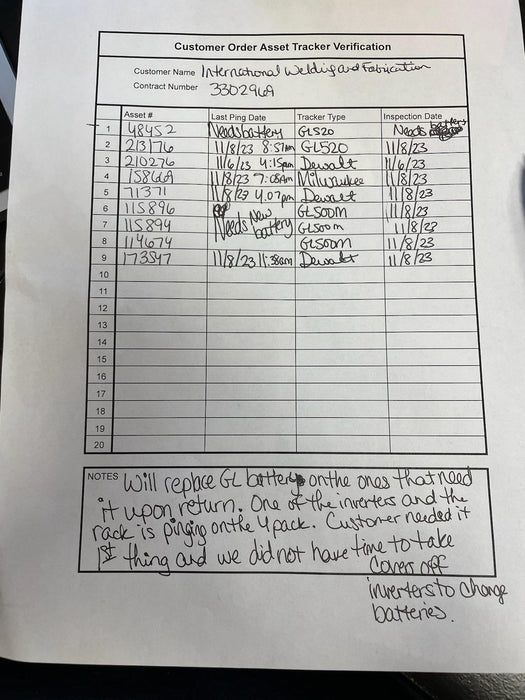 Customer Order Asset Tracker Verification
Customer Name International Welding and Fabrication
Contract Number 3302969
Asset # Last Ping Date Tracker Type Inspection Date
1 48452 Needs battery GL520 Needs battery
2 213176 11/8/23 8:57am GL520 11/8/23
3 210276 11/6/23 4:15pm Dewalt 11/6/23
4 158669 11/8/23 7:08AM Milwaukee 11/8/23
5 71371 11/8/23 4:07pm Dewalt 11/8/23
6 115896 Needs New GL500M 11/8/23
7 115894 battery GL500M 11/8/23
8 114674 GL500M 11/8/23
9 173547 11/8/23 11:38am Dewalt 11/8/23
10
11
12
13
14
15
16
17
18
19
20
NOTES Will replace GL battery on the ones that need
it upon return. One of the inverters and the
rack is pinging on the 4 pack. Customer needed it
1st thing and we did not have time to take
covers off
inverters to change
batteries.